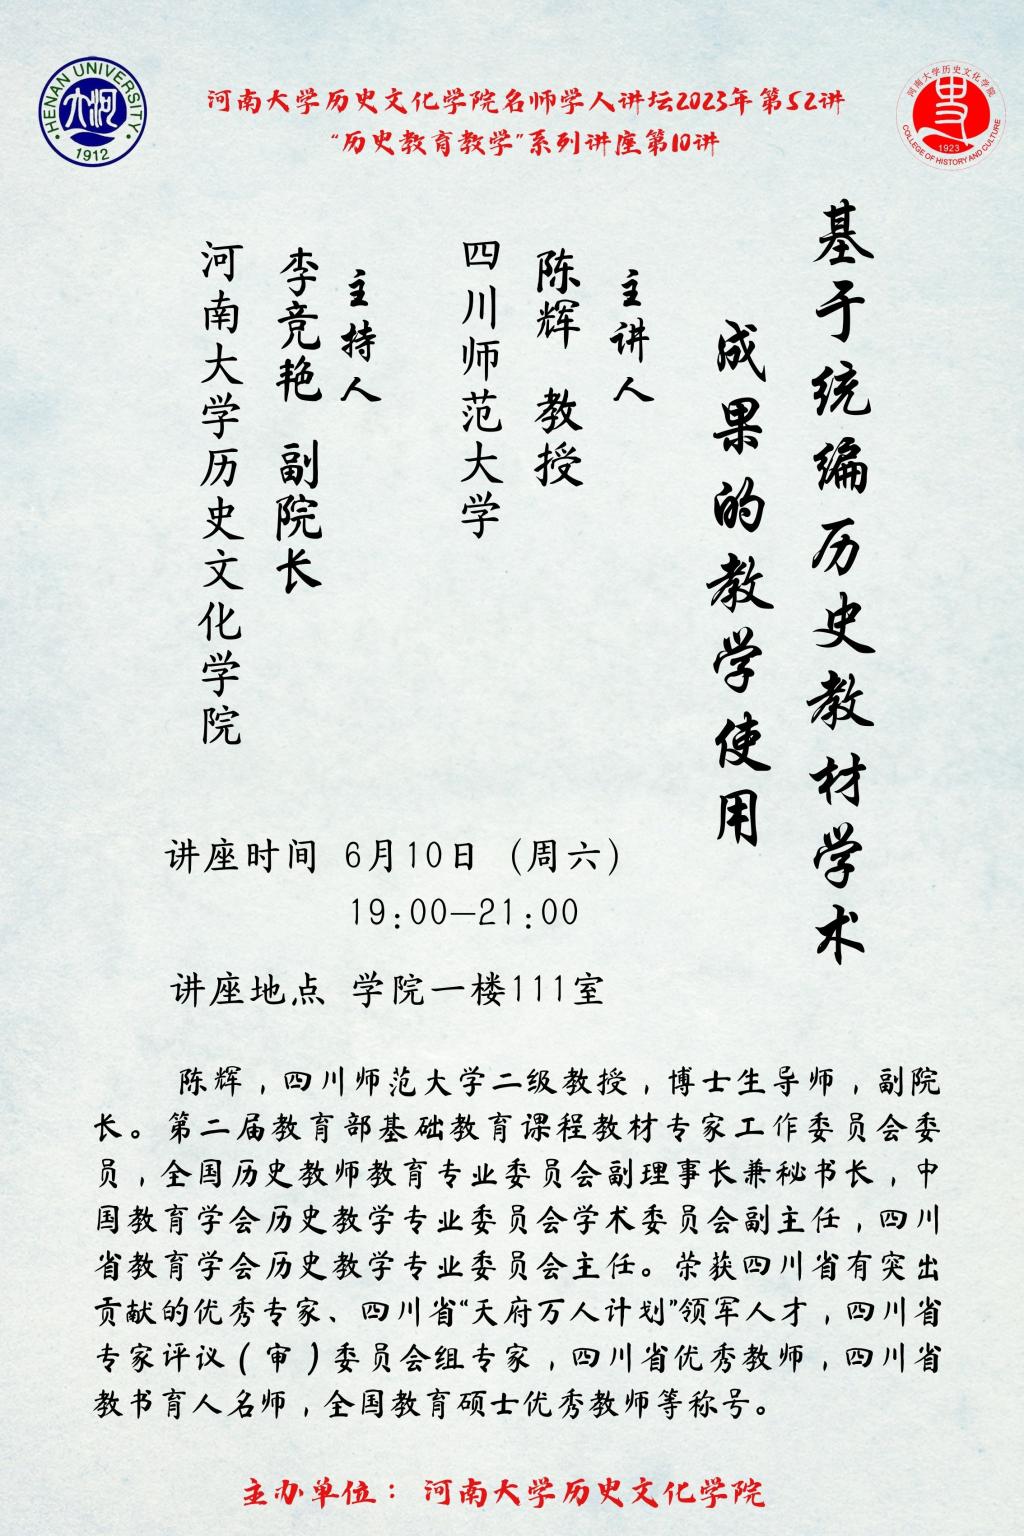 HENAN UNIVERSITY
大河
1912
河南大学历史文化学院名师学人讲坛2023年第52讲
“历史教育教学”系列讲座第10讲
河南大学历史文化学院
史
1923
COLLEGE OF HISTORY AND CULTURE
基于统编历史教材学术
成果的教学使用
主讲人
陈辉 教授
四川师范大学
主持人
李竞艳 副院长
河南大学历史文化学院
讲座时间 6月10日（周六）
19:00—21:00
讲座地点 学院一楼111室
陈辉，四川师范大学二级教授，博士生导师，副院
长。第二届教育部基础教育课程教材专家工作委员会委
员，全国历史教师教育专业委员会副理事长兼秘书长，中
国教育学会历史教学专业委员会学术委员会副主任，四川
省教育学会历史教学专业委员会主任。荣获四川省有突出
贡献的优秀专家、四川省“天府万人计划”领军人才，四川省
专家评议（审）委员会组专家，四川省优秀教师，四川省
教书育人名师，全国教育硕士优秀教师等称号。
主办单位：河南大学历史文化学院